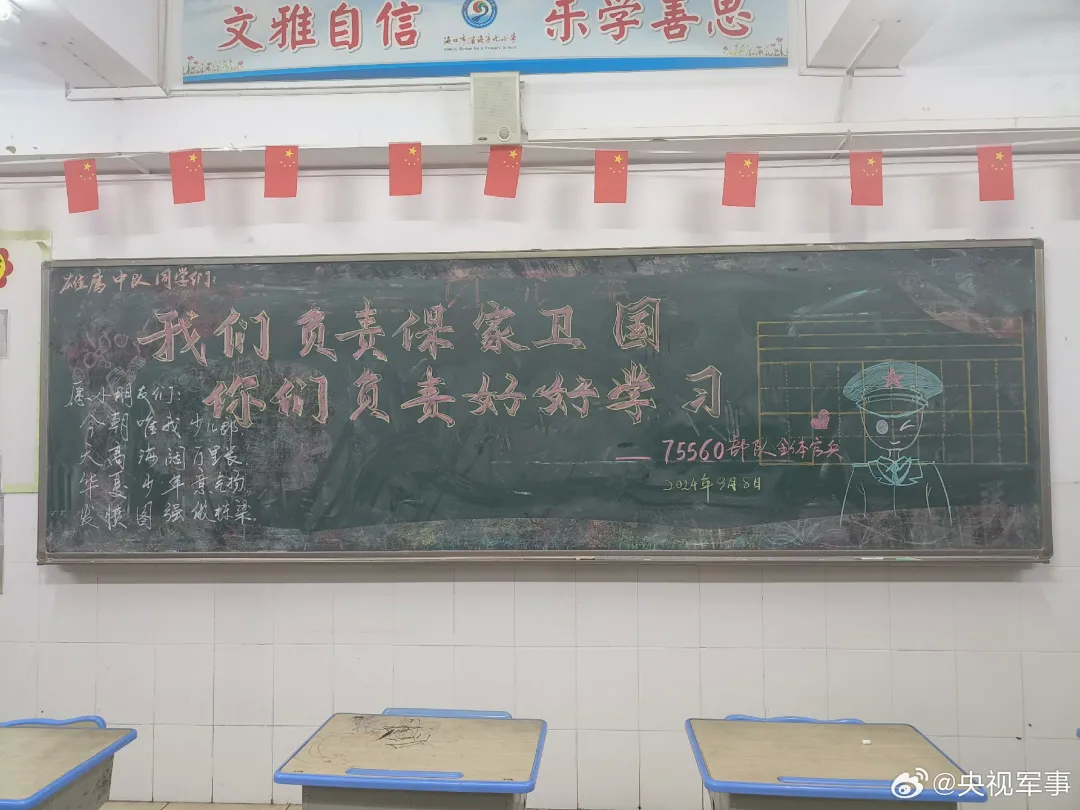 文雅自信
乐学善思
海口市滨海第九小学
雄鹰中队同学们:
我们负责保家卫国
你们负责好好学习
愿小朋友们:
今朝唯我少儿郎
天高海阔百里长
华夏少年意气扬
发愤图强做栋梁
——75560部队全体官兵
2024年9月8日
@央视军事